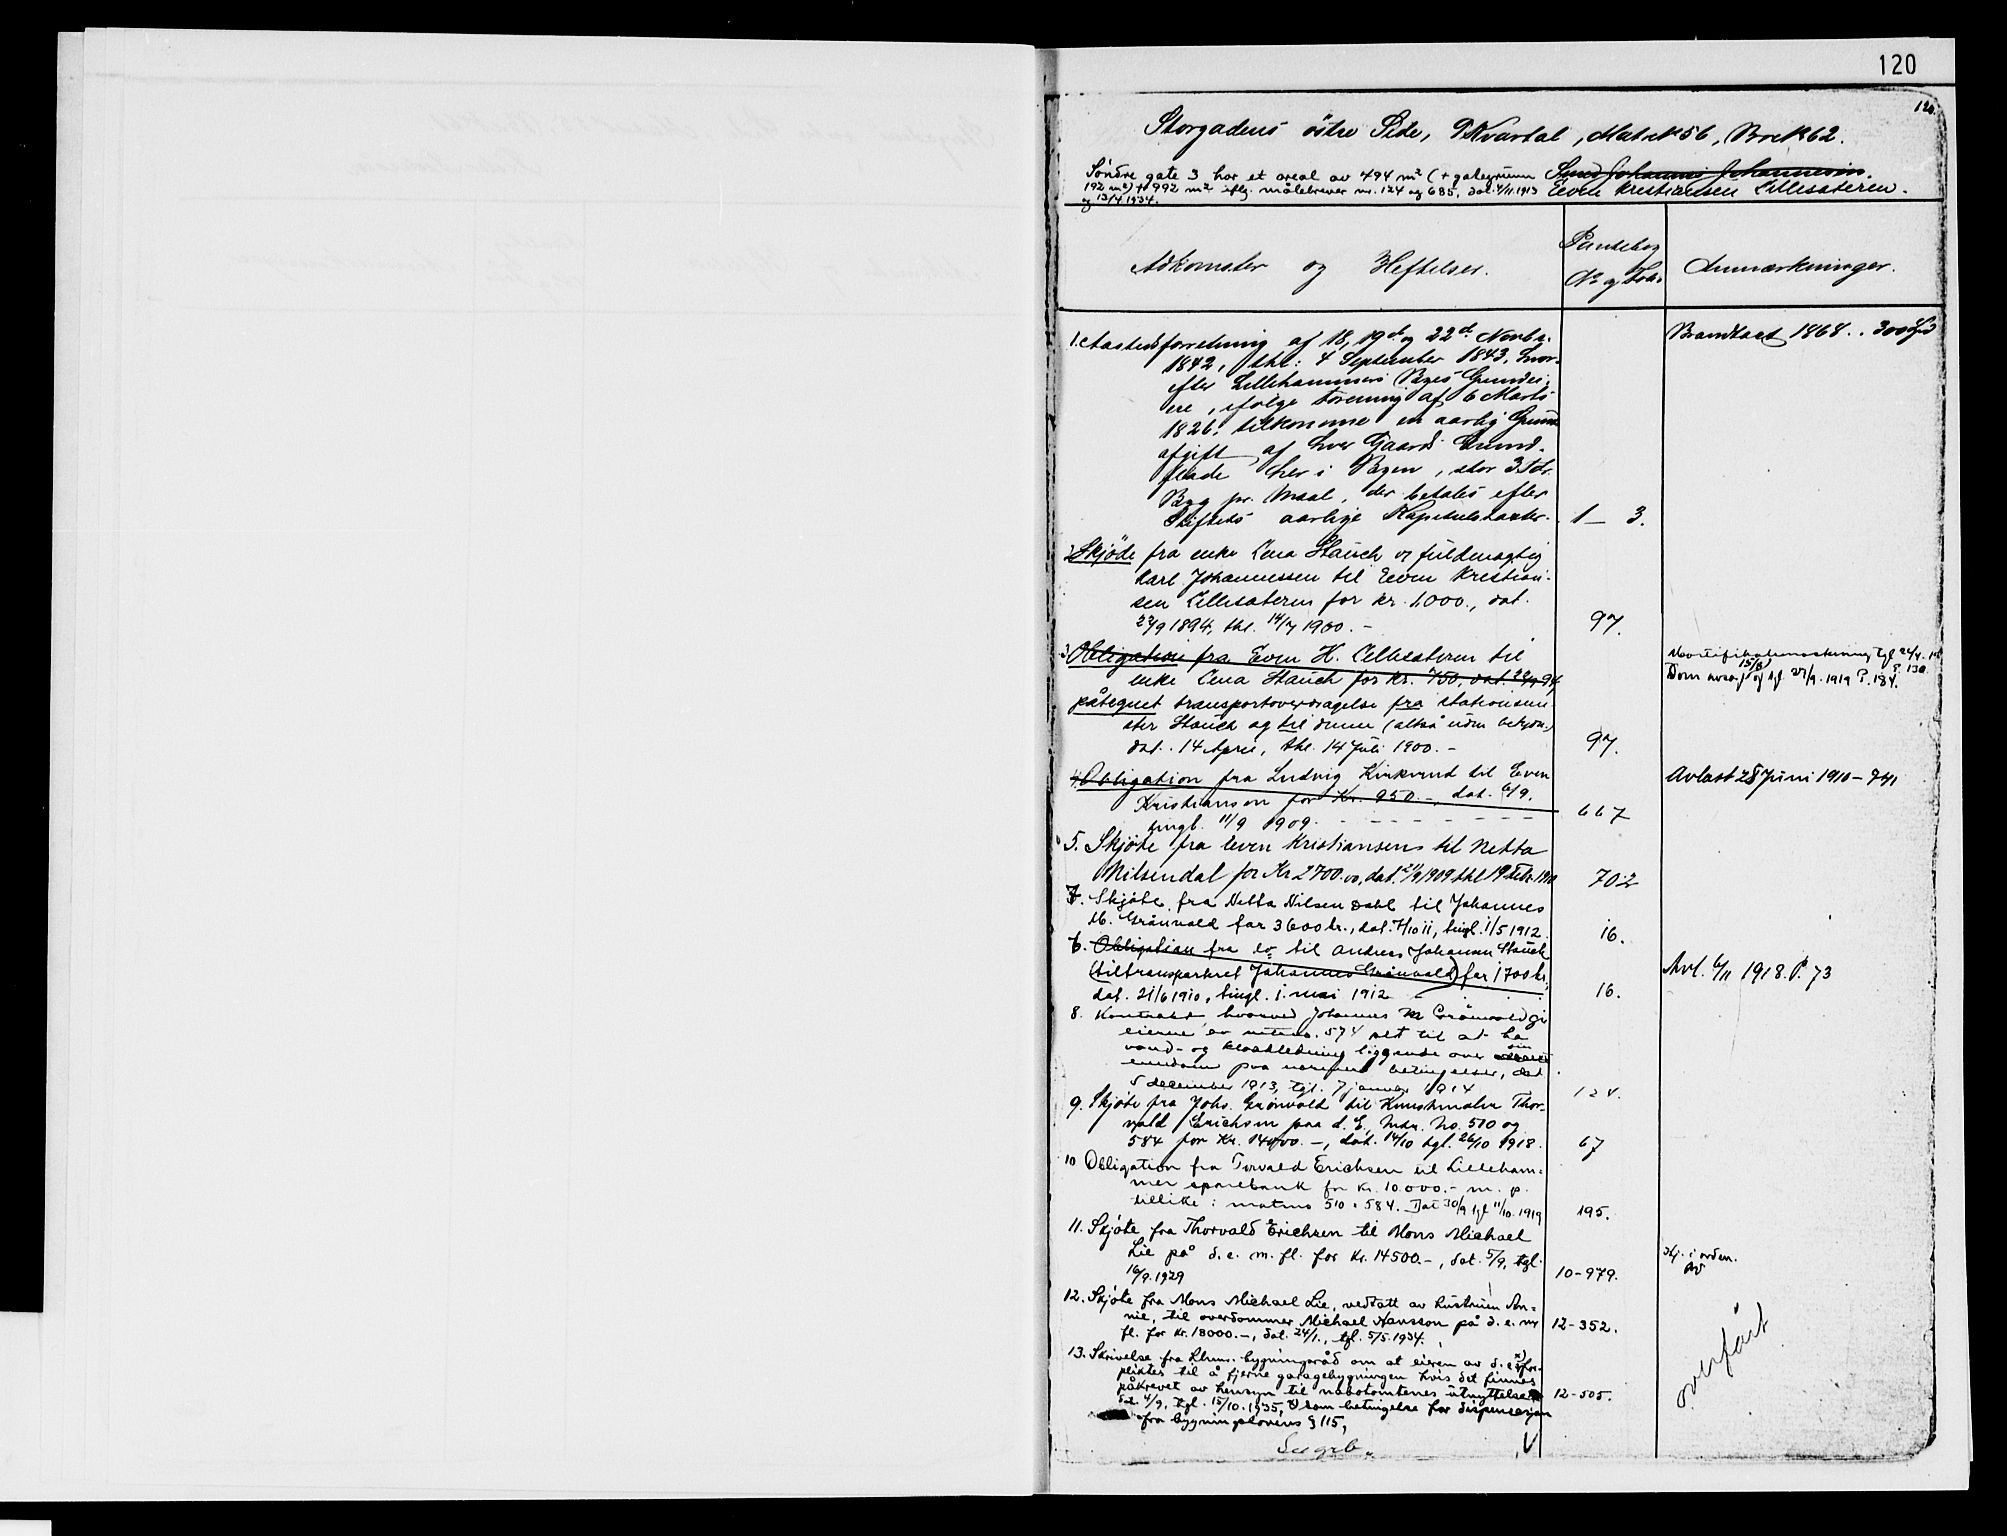 120
120.
Storgadens östre Side, 9 Kvartal, Mat. № 56, Br. № 62.
Søndre gate 3 har et areal av 494 m² (+ gategrunn
192 m²) + 992 m² iflg. målebrever nr. 124 og 685, dat. 4/11 1913
og 13/4 1934.
Johannes Johannesen.
Even Kristiansen Lillesæteren.
Adkomster og Heftelser.
Pantebog
№ og Fol.
Anmærkninger.
1. Aastedsforretning af 18, 19de og 22de Novbr.
1842, thl: 4 September 1843, hvor-
efter Lillehammers Byes Grundei-
ere, ifølge Forening af 6 Marts
1826, tilkomme en aarlig Grund-
afgift af hver Gaards Grund-
flade her i Byen, stor 3 Sdr.
Byg pr. Maal, der betales efter
Stiftets aarlige Kapitelstaxter.
1 — 3.
Brandtaxt 1868 . . 300 Spd
2. Skjöde fra enke Lena Stauch v/ fuldmægtig
Karl Johannessen til Even Kristian-
sen Lillesæteren for kr. 1.000., dat.
22/9 1894, thl. 14/7 1900. –
97.
3. Obligation fra Even K. Lillesæteren til
enke Lena Stauch for kr. 750, dat. 22/9 94,
påtegnet transportoverdragelse fra stationsme-
ster Stauch og til denne (altså uden betydn.)
dat. 14 April, thl. 14 Juli 1900. –
97.
Dom avsagt 15/8 og tgl. 27/9. 1919 P. 184.
4. Obligation fra Ludvig Kirkerud til Even
Kristiansen for Kr. 950.–, dat. 6/9.
tingl. 11/9 1909.
667
Avlæst 28 Juni 1910 – 741
5. Skjöte fra Even Kristiansen til Netta
Nilsendal for Kr 2700.00, dat. 21/9 1909 thl 19 Febr. 1910
702
7. Skjöte fra Netta Nilsen Dahl til Johannes
M. Grönvold for 3600 kr., dat. 7/10 11, tingl. 1/5 1912.
16.
6. Obligation fra do til Andreas Johansen Stauch
(tiltransportert Johannes Grönvold) for 1700 kr,
dat. 21/6 1910, tingl. 1. mai 1912
16.
Avl. 6/11 1918. P. 73
8. Kontrakt hvorved Johannes M Grönvold gir
eierne av matrno. 574 ret til at ha
vand- og kloakledning liggende over sin
eiendom paa nærmere betingelser, dat
5 december 1913, tgl. 7 januar 1914
124.
9. Skjöte fra Johs. Grönvold til Kunstmaler Thor-
vald Erichsen paa d. E., Matr. No. 510 og
584 for Kr. 14000.–, dat. 14/10 tgl. 26/10 1918.
67
10 Obligation fra Torvald Erichsen til Lilleham-
mer sparebank for kr. 10.000.– m. p.
tillike i matrno 510 o 584. Dat 30/9 tgl 11/10. 1919
195.
11. Skjöte fra Thorvald Erichsen til Mons Michael
Lie på d. e. m. fl. for kr. 14500.–, dat. 5/9, tgl.
16/9. 1929
10–979.
Skj. i orden.
12. Skjöte fra Mons Michael Lie, vedtatt av hustruen An-
nie, til overdommer Michael Hansson på d. e. m
fl. for kr. 18000.–, dat. 24/1., tgl. 5/5. 1934.
12–352.
13. Skrivelse fra Lhmr. bygningsråd om at eieren av d. e. x) for-
pliktes til å fjerne garagebygningen hvis det finnes
påkrevet av hensyn til nabotomtenes utnyttelse
dat. 4/9, tgl. 15/10. 1935, x) som betingelse for dispensasjon
fra bygningslovens § 115,
12–505.
overført